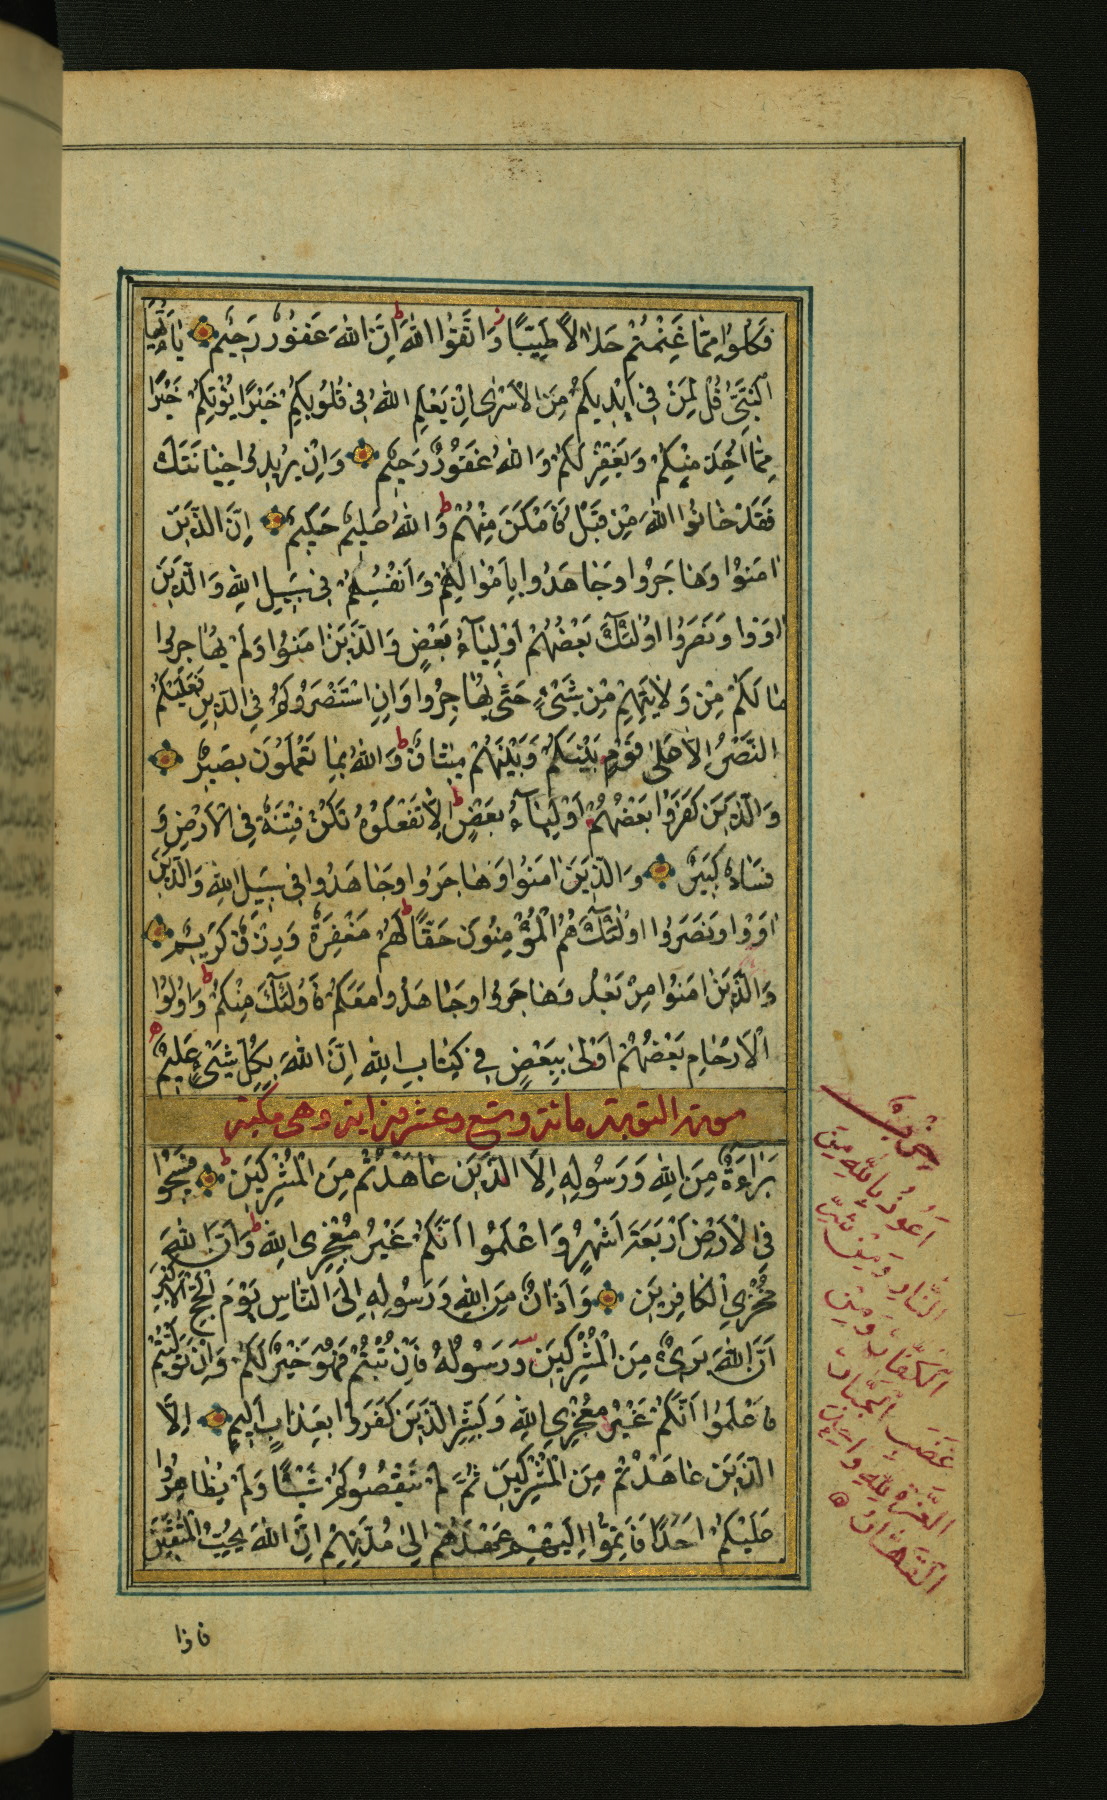 فَكُلُوا مِمَّا غَنِمْتُمْ حَلَالًا طَيِّبًا وَاتَّقُوا اللّٰهَ اِنَّ اللّٰهَ غَفُورٌ رَحِيمٌ يَا اَيُّهَا
النَّبِيُّ قُلْ لِمَنْ فِي اَيْدِيكُمْ مِنَ الْاَسْرٰى اِنْ يَعْلَمِ اللّٰهُ فِي قُلُوبِكُمْ خَيْرًا يُؤْتِكُمْ خَيْرًا
مِمَّا اُخِذَ مِنْكُمْ وَيَغْفِرْ لَكُمْ وَاللّٰهُ غَفُورٌ رَحِيمٌ وَاِنْ يُرِيدُوا خِيَانَتَكَ
فَقَدْ خَانُوا اللّٰهَ مِنْ قَبْلُ فَاَمْكَنَ مِنْهُمْ وَاللّٰهُ عَلِيمٌ حَكِيمٌ اِنَّ الَّذِينَ
اٰمَنُوا وَهَاجَرُوا وَجَاهَدُوا بِاَمْوَالِهِمْ وَاَنْفُسِهِمْ فِي سَبِيلِ اللّٰهِ وَالَّذِينَ
اٰوَوْا وَنَصَرُوا اُولٰٓئِكَ بَعْضُهُمْ اَوْلِيَآءُ بَعْضٍ وَالَّذِينَ اٰمَنُوا وَلَمْ يُهَاجِرُوا
مَا لَكُمْ مِنْ وَلَايَتِهِمْ مِنْ شَيْءٍ حَتّٰى يُهَاجِرُوا وَاِنِ اسْتَنْصَرُوكُمْ فِي الدِّينِ فَعَلَيْكُمُ
النَّصْرُ اِلَّا عَلٰى قَوْمٍ بَيْنَكُمْ وَبَيْنَهُمْ مِيثَاقٌ وَاللّٰهُ بِمَا تَعْمَلُونَ بَصِيرٌ
وَالَّذِينَ كَفَرُوا بَعْضُهُمْ اَوْلِيَآءُ بَعْضٍ اِلَّا تَفْعَلُوهُ تَكُنْ فِتْنَةٌ فِي الْاَرْضِ وَ
فَسَادٌ كَبِيرٌ وَالَّذِينَ اٰمَنُوا وَهَاجَرُوا وَجَاهَدُوا فِي سَبِيلِ اللّٰهِ وَالَّذِينَ
اٰوَوْا وَنَصَرُوا اُولٰٓئِكَ هُمُ الْمُؤْمِنُونَ حَقًّا لَهُمْ مَغْفِرَةٌ وَرِزْقٌ كَرِيمٌ
وَالَّذِينَ اٰمَنُوا مِنْ بَعْدُ وَهَاجَرُوا وَجَاهَدُوا مَعَكُمْ فَاُولٰٓئِكَ مِنْكُمْ وَاُولُوا
الْاَرْحَامِ بَعْضُهُمْ اَوْلٰى بِبَعْضٍ فِي كِتَابِ اللّٰهِ اِنَّ اللّٰهَ بِكُلِّ شَيْءٍ عَلِيمٌ
سورة التوبة مائة وتسع وعشرين اية وهى مكية
بَرَاءَةٌ مِنَ اللّٰهِ وَرَسُولِهِ اِلَى الَّذِينَ عَاهَدْتُمْ مِنَ الْمُشْرِكِينَ فَسِيحُوا
فِي الْاَرْضِ اَرْبَعَةَ اَشْهُرٍ وَاعْلَمُوا اَنَّكُمْ غَيْرُ مُعْجِزِي اللّٰهِ وَاَنَّ اللّٰهَ
مُخْزِي الْكَافِرِينَ وَاَذَانٌ مِنَ اللّٰهِ وَرَسُولِهِ اِلَى النَّاسِ يَوْمَ الْحَجِّ الْاَكْبَرِ
اَنَّ اللّٰهَ بَرِيءٌ مِنَ الْمُشْرِكِينَ وَرَسُولُهُ فَاِنْ تُبْتُمْ فَهُوَ خَيْرٌ لَكُمْ وَاِنْ تَوَلَّيْتُمْ
فَاعْلَمُوا اَنَّكُمْ غَيْرُ مُعْجِزِي اللّٰهِ وَبَشِّرِ الَّذِينَ كَفَرُوا بِعَذَابٍ اَلِيمٍ اِلَّا
الَّذِينَ عَاهَدْتُمْ مِنَ الْمُشْرِكِينَ ثُمَّ لَمْ يَنْقُصُوكُمْ شَيْئًا وَلَمْ يُظَاهِرُوا
عَلَيْكُمْ اَحَدًا فَاَتِمُّوا اِلَيْهِمْ عَهْدَهُمْ اِلٰى مُدَّتِهِمْ اِنَّ اللّٰهَ يُحِبُّ الْمُتَّقِينَ
اَعُوذُ بِاللّٰهِ مِنَ
النَّارِ وَمِنْ شَرِّ
الْكُفَّارِ وَمِنْ
غَضَبِ الْجَبَّارِ
الْعِزَّةُ لِلّٰهِ
الْقَهَّارِ
فاذا